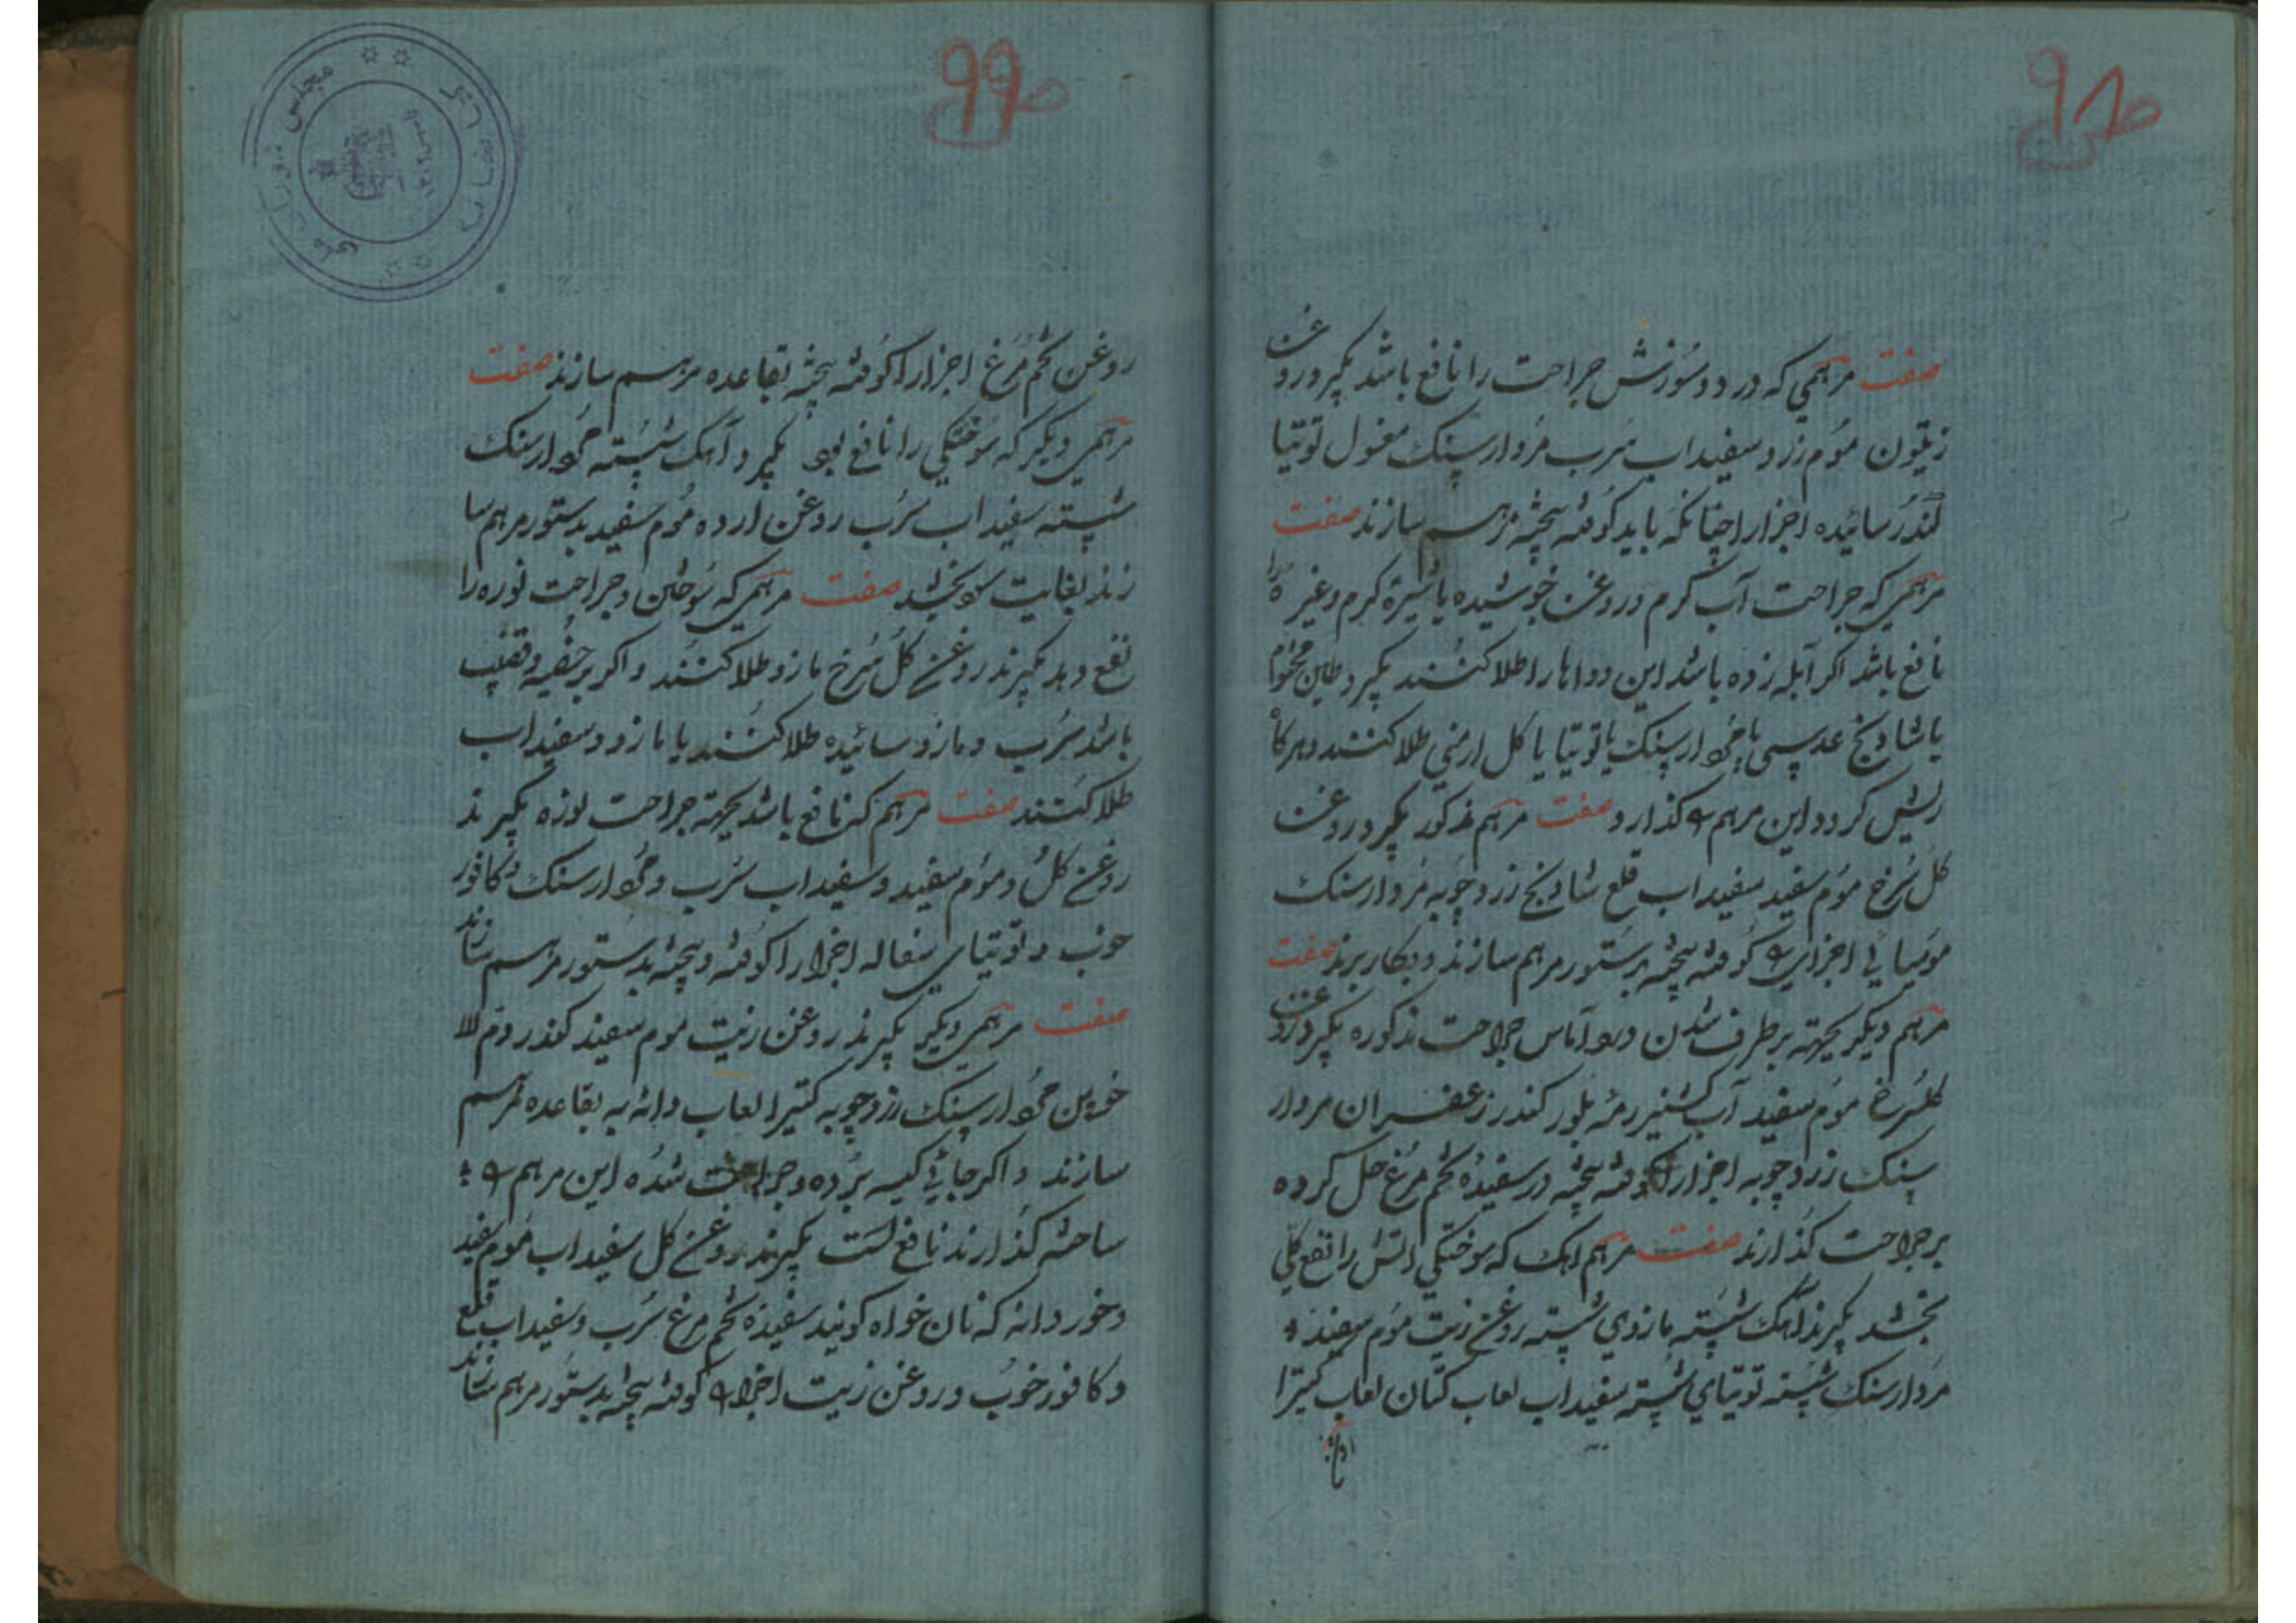 ص ۹۸
صفت مرهمی که درد و سوزش جراحت را نافع باشد بگیرد روغن
زیتون موم زرد سفیداب سرب مردارسنک مغسول توتیا
کندر سائیده اجزا را چنانکه باید کوفته بیخته مرهم سازند صفت
مرهمی که جراحت آب کرم و روغن جوشیده یا شیره کرم و غیره را
نافع باشد اکر آبله زده باشد این دواها را طلا کنند بگیرد طین مختوم
یا شادنج عدسی یا مردارسنک یا توتیا یا کل ارمنی طلا کنند و هرکاه
ریش کردد این مرهم کذارد صفت مرهم مذکور بگیرد روغن
کل سرخ موم سفید سفیداب قلع شادنج زردچوبه مردارسنک
مومیائی اجزای کوفته بیخته بدستور مرهم سازند و بکار برند صفت
مرهم دیکر بجهته برطرف شدن درد آماس جراحت مذکوره بگیرد روغن
کلسرخ موم سفید آب کشنیز بلور کندر زعفران مردار
سنک زردچوبه اجزا را کوفته بیخته در سفیده تخم مرغ حل کرده
بر جراحت کذارند صفت مرهم اهک که سوختکی اتش را نفع کلی
بخشد بگیرند آهک شسته مازوی شسته روغن زیت موم سفید
مردارسنک شسته توتیای شسته سفیداب لعاب کتان لعاب کتیرا
ص ۹۹
روغن تخم مرغ اجزا را کوفته بیخته بقاعده مرهم سازند صفت
مرهمی دیکر که سوختکی را نافع بود بگیرد آهک شسته مردارسنک
شسته سفیداب سرب روغن ارده موم سفید بدستور مرهم سا
زند بغایت سود بخشد صفت مرهمی که سوختن و جراحت نوره را
نفع دهد بگیرند روغن کل سرخ مازو طلا کنند و اکر بر خصیه و قضیب
باشد سرب و مازو سائیده طلا کنند یا مازو و سفیداب
طلا کنند صفت مرهم که نافع باشد بجهته جراحت نوره بگیرند
روغن کل و موم سفید و سفیداب سرب و مردارسنک و کافور
خوب و توتیای سفاله اجزا را کوفته و بیخته بدستور مرهم سازند
صفت مرهمی دیکر بگیرند روغن زیت موم سفید کندر دم الا
خوین مردارسنک زردچوبه کتیرا لعاب دانه به بقاعده مرهم
سازند و اکر جائی کیسه برده و جراحت شده این مرهم
ساخته کذارند نافع است بگیرند روغن کل سفیداب موم سفید
و خوردانه که نان خواه کویند سفیده تخم مرغ سرب و سفیداب قلع
و کافور خوب و روغن زیت اجزا کوفته بیخته بدستور مرهم سازند